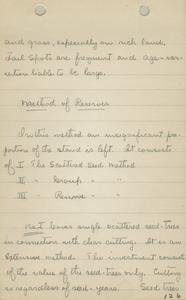 and grass, especially on rich land,
Fail spots are frequent and age-var-
iation liable to be large.
Method of Reserves
In this method an insignificant pro-
portion of the stand is left. It consists
of I The Scattered Seed Method
II " Group "
III " Reserve "
No I leaves single scattered seed-trees
in connection with clear cutting. It is an
Extensive method. The investment consists
of the value of the seed-trees only. Cutting
is regardless of seed-years. Seed trees
126